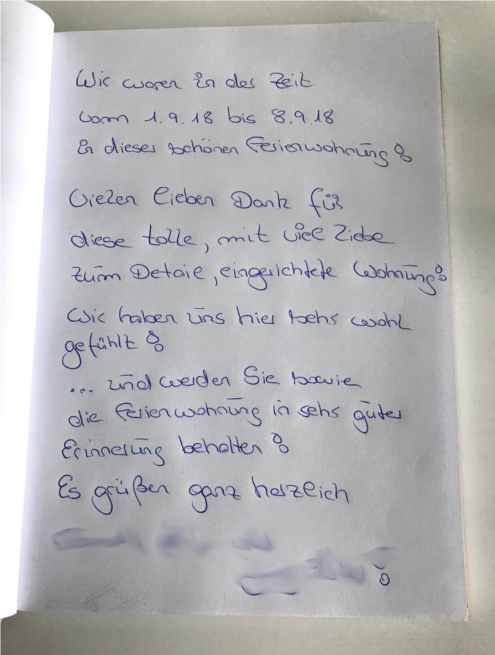 Wir waren in der Zeit
vom 1.9.18 bis 8.9.18
in dieser schönen Ferienwohnung!
Vielen lieben Dank für
diese tolle, mit viel Liebe
zum Detail, eingerichtete Wohnung!
Wir haben uns hier sehr wohl
gefühlt!
... und werden Sie sowie
die Ferienwohnung in sehr guter
Erinnerung behalten!
Es grüßen ganz herzlich